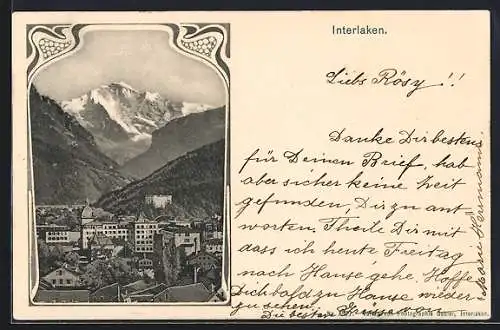 Interlaken.
Liebs Rösy !!
Danke Dir bestens
für Deinen Brief, hab
aber sicher keine Zeit
gefunden, Dir zu ant
worten. Theile Dir mit
dass ich heute Freitag
nach Hause gehe. Hoffe
Dich bald zu Hause wieder
zu sehen.
Die besten Grüsse
Photographie Gabler, Interlaken.